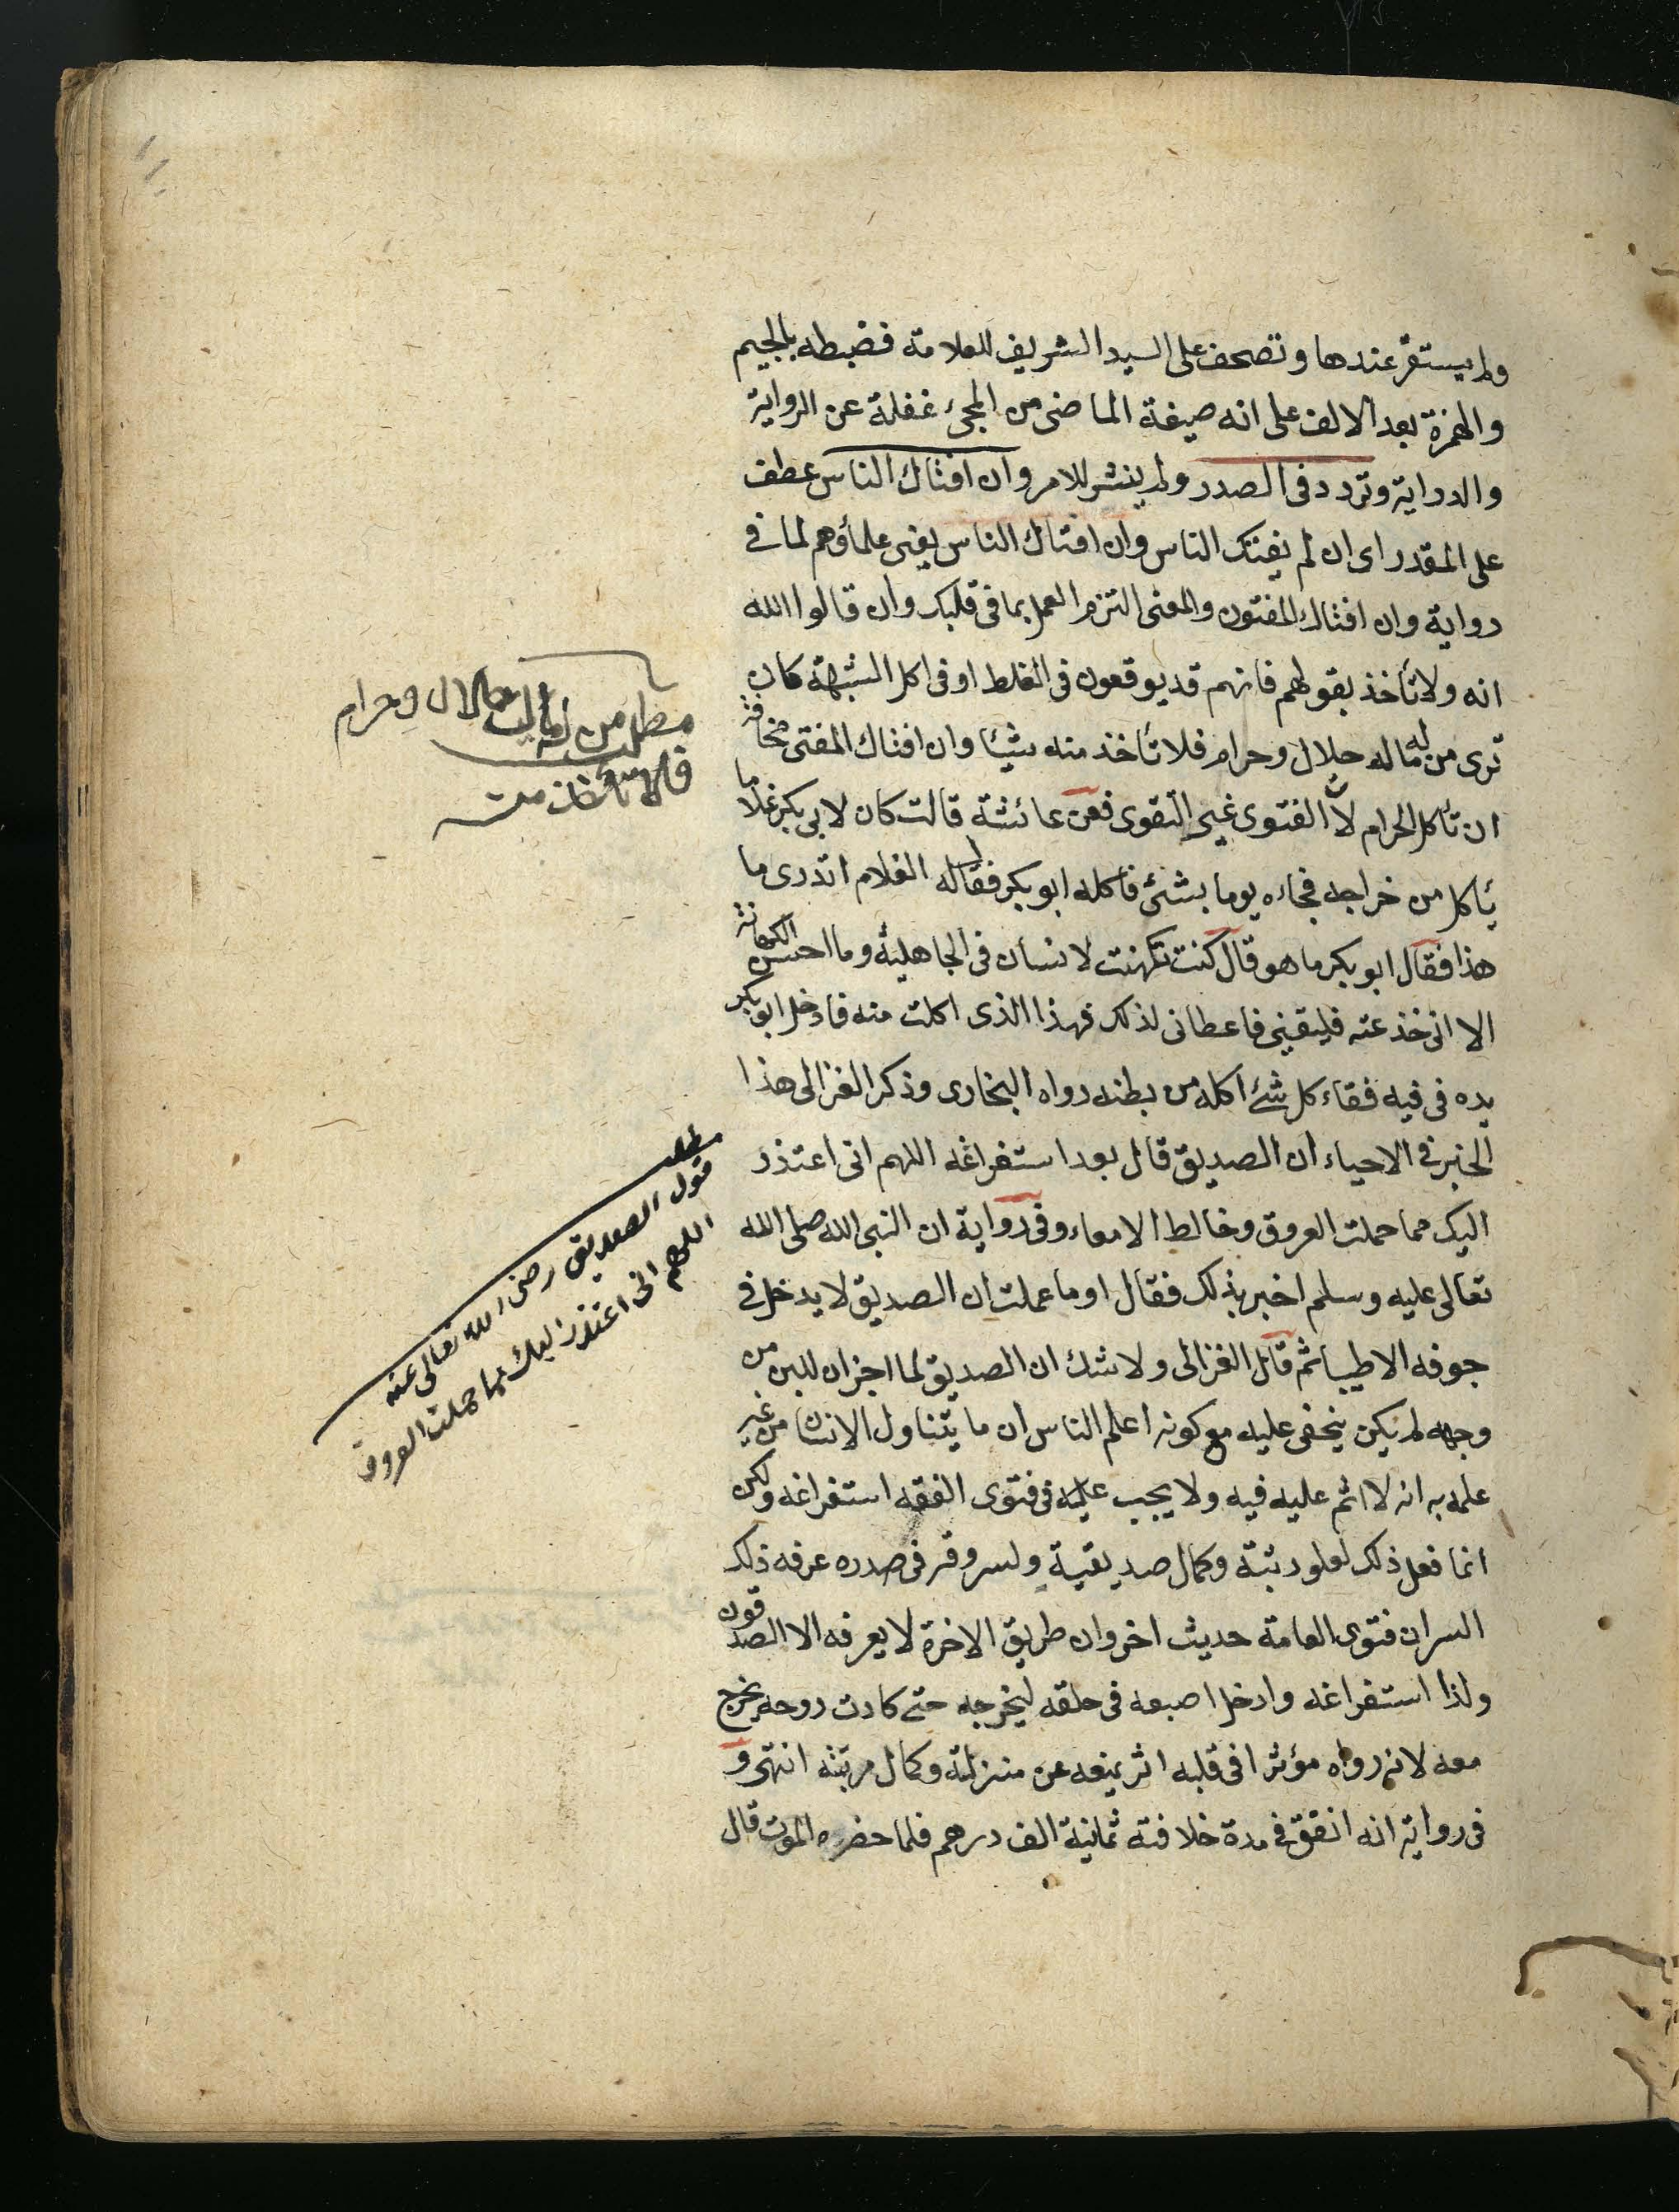 ولم يستقر عندها وتصحف على السيد الشريف للعلامة فضبطه بالجيم
والهمزة بعد الالف على انه صيغة الماضى من المجئ غفلة عن الرواية
والدراية وتردد فى الصدر ولم ينشر للامر وان افتاك الناس عطف
على المقدر اى ان لم يفتك الناس وان افتاك الناس يعنى علمأوهم لما فى
رواية وان افتاك المفتون والمعنى التزم العمل بما فى قلبك وان قالوا الله
انه ولا تأخذ بقولهم فانهم قد يوقعون فى الغلط او فى اكل الشبهة كان
ترى من له ماله حلال وحرام فلا تأخذ منه شيئا وان افتاك المفتى مخافة
ان تأكل الحرام لان الفتوى غير التقوى فعن عائشة قالت كان لابى بكر غلاما
يأكل من خراجه فجاءه يوما بشئ فاكله ابو بكر فقال له الغلام اتدرى ما
هذا فقال ابو بكر ما هو قال كنت تكهنت لانسان فى الجاهلية وما احسن الكهانة
الا انى خذعته فليقينى فاعطانى لذلك فهذا الذى اكلت منه فادخل ابو بكر
يده فى فيه فقاء كل شئ اكله من بطنه رواه البخارى وذكر الغزالى هذا
الخبر فى الاحياء ان الصديق قال بعد استفراغه اللهم انى اعتذر
اليك مما حملت العروق وخالط الامعاء وفى رواية ان النبى الله صلى الله
تعالى عليه وسلم اخبر بذلك فقال اوما عملت ان الصديق لا يدخل فى
جوفه الا طيبا ثم قال الغزالى ولا شك ان الصديق لما اجزان للبن من
وجهه لم يكن يخفى عليه مع كونه اعلم الناس ان ما يتناول الانسان من غير
علمه به انه لا اثم عليه فيه ولا يجب عليه فى فتوى الفقه استفراغه ولكن
انما فعل ذلك لعلو رتبته وكمال صديقية ولسر وقر فى صدره عرفه ذلك
السر ان فتوى العامة حديث اخر وان طريق الاخرة لا يعرفه الا الصدقون
ولذا استفراغه وادخل اصبعه فى حلقه ليخرجه حتى كادت روحه يخرج
معه لانه رواه مؤثرا فى قلبه اثر يمنعه عن منزلته وكمال مرتبته انتهى و
فى رواية انه انفق فى مدة خلافته ثمانية الف درهم فلما حضره الموت قال
مطلب من له ماله حلال وحرام
فلا تأخذ منه
مطلب
قول الصديق رضى الله تعالى عنه
اللهم انى اعتذر اليك مما حملت العروق